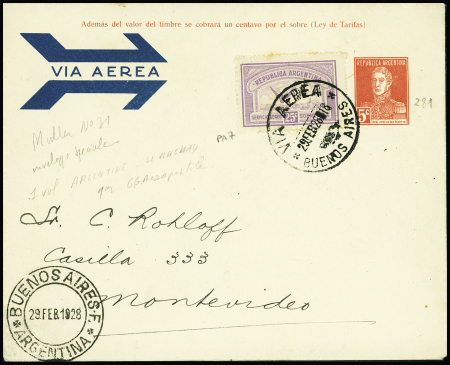 Además del valor del timbre se cobrará un centavo por el sobre (Ley de Tarifas)
VIA AEREA
REPUBLICA ARGENTINA
25
REPUBLICA ARGENTINA
5
VIA AEREA
29 FEB 28
BUENOS AIRES
281
Muller No 31
1 vol Argentine Uruguay
Sr. C. Rohloff
Casilla 333
Montevideo
BUENOS AIRES-F.
29 FEB. 1928
ARGENTINA